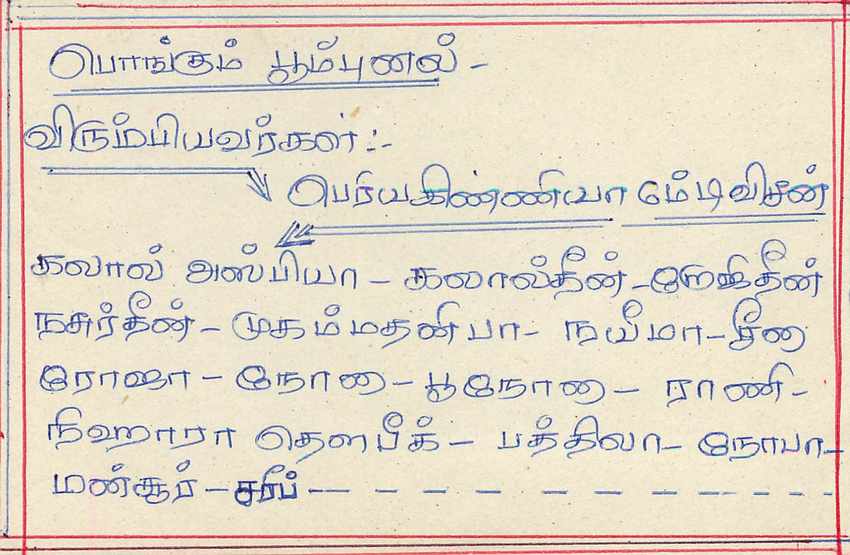 பொங்கும் பூம்புனல் -
விரும்பியவர்கள் :-
பெரியகிண்ணியா 6ம்டிவிசன்
கலால் அஸ்பியா - கலால்தீன் - றேஷிதீன்
நசுர்தீன் - முகம்மதனிபா - நயீமா - றீனா
ரோஷா - நோனா - பூநோனா - ராணி -
நிஹாரா தௌபீக் - பத்திலா - நோபா -
மன்சூர் - சரீப் - - - - - - - - - - - -